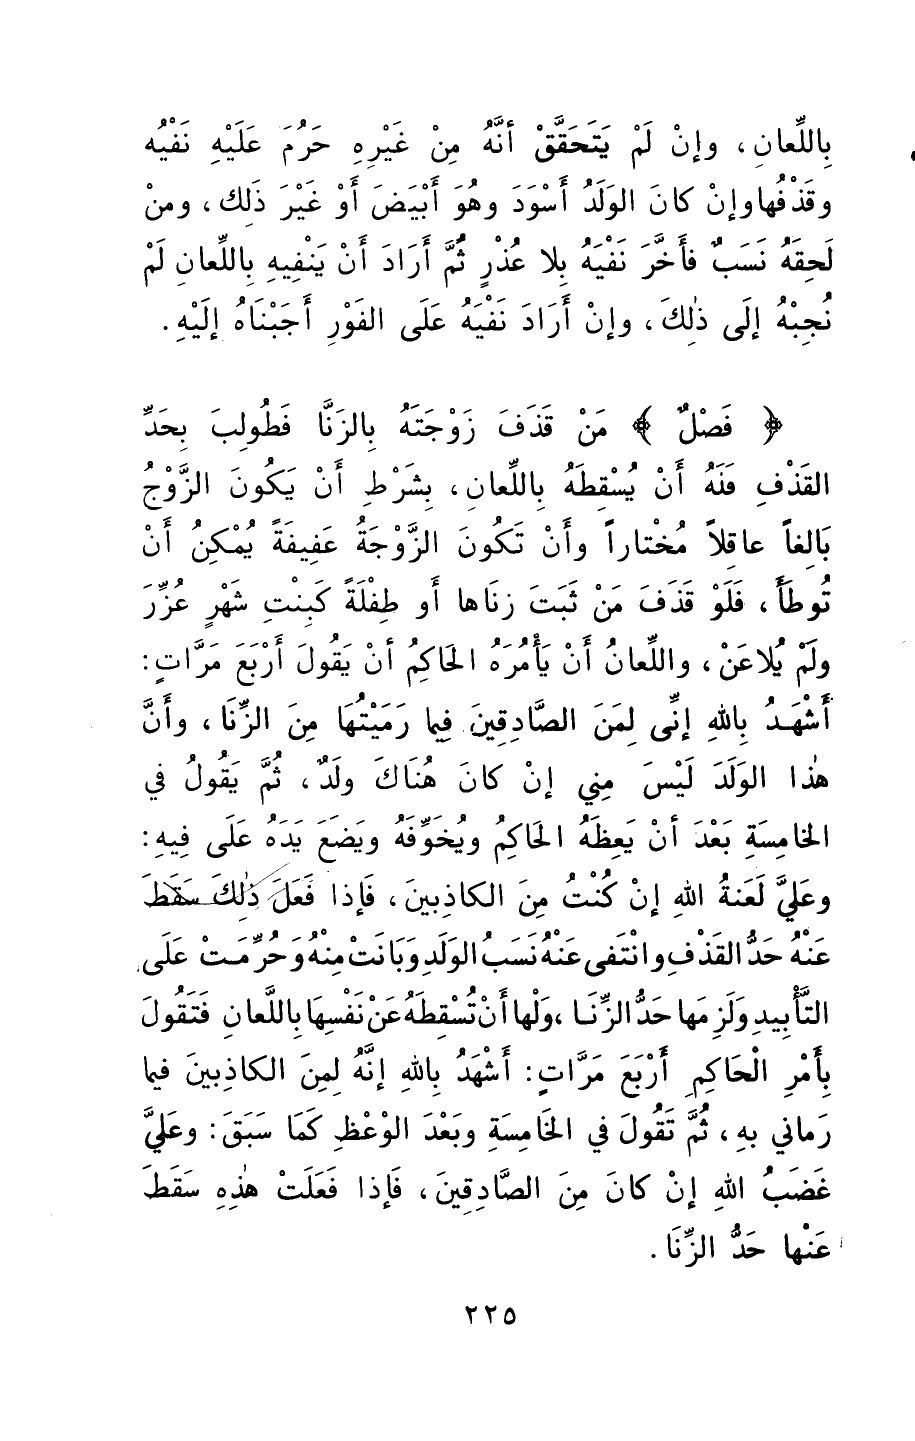 بِاللِّعانِ ، وإنْ لَمْ يَتَحَقَّقْ أنَّهُ مِنْ غَيْرِهِ حَرُمَ عَلَيْهِ نَفْيُه
وقَذْفُها وإنْ كانَ الوَلَدُ أَسْوَدَ وهُوَ أَبْيَضَ أَوْ غَيْرَ ذَلِك ، ومنْ
لَحِقَهُ نَسَبٌ فأَخَّرَ نَفْيَهُ بِلا عُذْرٍ ثُمَّ أَرَادَ أَنْ يَنْفِيهِ بِاللِّعانِ لَمْ
نُجِبْهُ إلَى ذٰلِكَ ، وإنْ أَرَادَ نَفْيَهُ عَلَى الفَوْرِ أَجَبْنَاهُ إلَيْهِ .
﴿ فَصْلٌ ﴾ مَنْ قَذَفَ زَوْجَتَهُ بِالزِّنَّا فَطُولِبَ بِحَدِّ
القَذْفِ فَلَهُ أَنْ يُسْقِطَهُ بِاللِّعانِ ، بِشَرْطِ أَنْ يَكُونَ الزَّوْجُ
بَالِغاً عاقِلاً مُخْتاراً وأَنْ تَكُونَ الزَّوْجَةُ عَفِيفَةً يُمْكِنُ أَنْ
تُوطَأَ ، فَلَوْ قَذَفَ مَنْ ثَبَتَ زِنَاها أَو طِفْلَةً كَبِنْتِ شَهْرٍ عُزِّرَ
ولَمْ يُلاعَنْ ، واللِّعانُ أَنْ يَأْمُرَهُ الحَاكِمُ أنْ يَقُولَ أَرْبَعَ مَرَّاتٍ :
أَشْهَدُ بِاللهِ إنِّى لِمَنَ الصَّادِقِينَ فِيما رَمَيْتُهَا مِنَ الزِّنَا ، وأَنَّ
هٰذا الوَلَدَ لَيْسَ مِنِي إنْ كانَ هُنَاكَ ولَدٌ ، ثُمَّ يَقُولُ في
الخامِسَةِ بَعْدَ أنْ يَعِظَهُ الحَاكِمُ ويُخَوِّفَهُ ويَضَعَ يَدَهُ عَلَى فِيهِ :
وعَلَيَّ لَعَنةُ اللهِ إنْ كُنْتُ مِنَ الكاذِبينَ ، فَإذا فَعَلَ ذٰلِكَ سَقَطَ
عَنْهُ حَدُّ القَذْفِ وانْتَفى عَنْهُ نَسَبُ الوَلَدِ وَبَانَتْ مِنْهُ وَحُرِّمَتْ عَلَى
التَّأْبِيدِ ولَزِمَها حَدُّ الزِّنَا ، ولَها أَنْ تُسْقِطَهُ عَنْ نَفْسِهَا بِاللِّعانِ فَتَقُولَ
بِأَمْرِ الْحَاكِمِ أَرْبَعَ مَرَّاتٍ : أَشْهَدُ بِاللهِ إنَّهُ لَمِنَ الكاذِبينَ فيما
رَماني بهِ ، ثُمَّ تَقُولَ في الخَامِسَةِ وبَعْدَ الوْعْظِ كَمَا سَبَقَ : وعَلَيَّ
غَضَبُ اللهِ إنْ كانَ مِنَ الصَّادِقِينَ ، فَإذا فَعَلَتْ هٰذِهِ سَقَطَ
عَنْها حَدُّ الزِّنَا .
٢٢٥